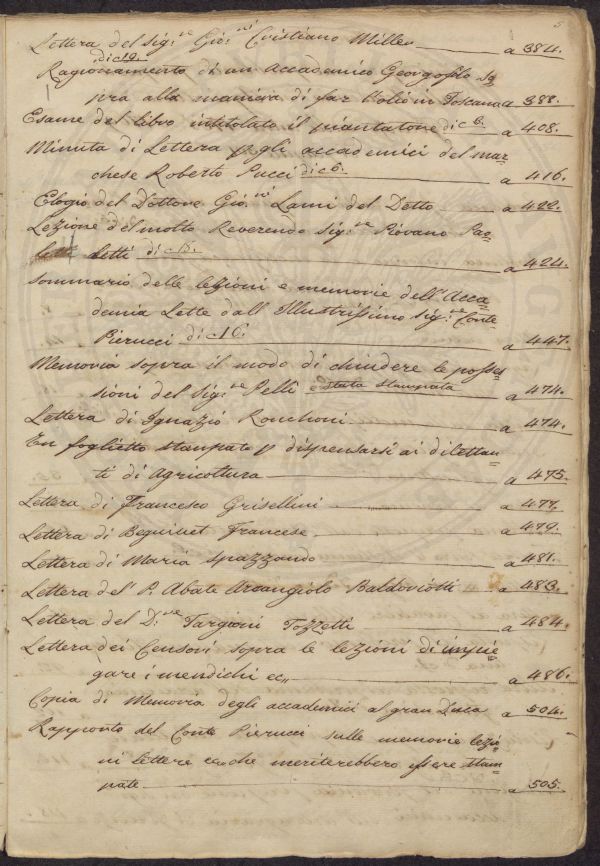 5
Lettera del Sig:re Gio:ni Cristiano Miller a 384.
di c 19.
Ragionamento di un Accademico Georgofilo so=
pra alla maniera di far l'olio in Toscana a 388.
Esame del libro intitolato il piantatone di c 8. a 408.
Minuta di Lettera p gli accademici del mar=
chese Roberto Pucci di c 6. a 416.
Elogio del Dottore Gio:ni Lami del Detto a 422.
Lezione del molto Reverendo Sig:re Piovano Pao=
letti di c 15. a 424.
Sommario delle lezioni e memorie dell'Acca=
demia Lette dall Illustrissimo Sig:re Conte
Pierucci di c 16. a 447.
Memoria sopra il modo di chiudere le posses=
sioni del Sig:re Pelli è stata stampata a 474.
Lettera di Ignazio Ronchoni a 474.
Un foglietto stampato p dispensarsi ai dilettan=
ti di Agricoltura a 475.
Lettera di Francesco Grisellini a 477.
Lettera di Beguillet Francese a 479.
Lettera di Maria Spazzando a 481.
Lettera del P. Abate Arcangiolo Baldoviotti a 483.
Lettera del D:re Targioni Tozzetti a 484.
Lettera dei Censori sopra le lezioni di impie=
gare i mendichi ec„ a 486.
Copia di Memoria degli accademici al gran Duca a 504.
Rapporto del Conte Pierucci sulle memorie lezio=
ni lettere ec„ che meriterebbero essere stam=
pate a 505.